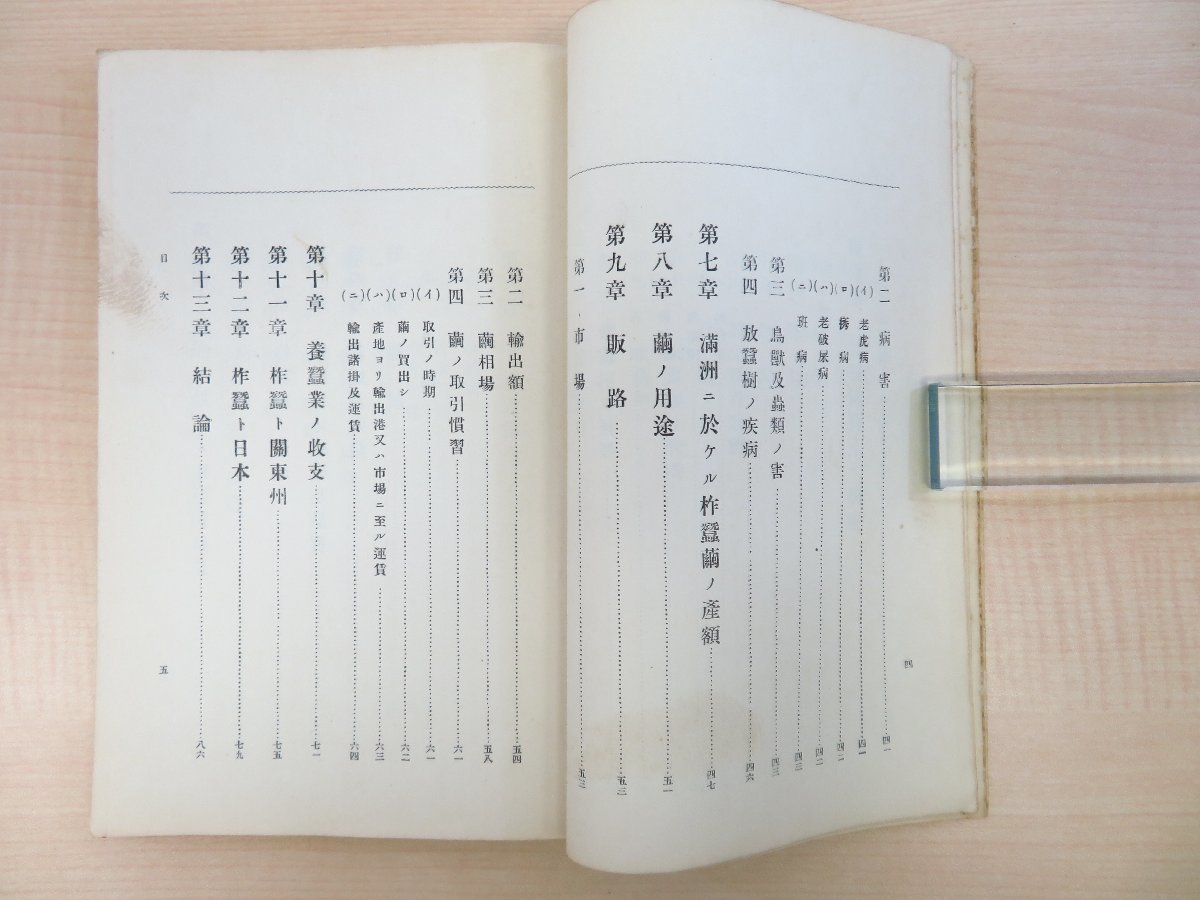 第二 病害……四一
(イ) 老虎病……四一
(ロ) 膨病……四二
(ハ) 老破尿病……四二
(ニ) 斑病……四三
第三 鳥獸及蟲類ノ害……四三
第四 放蠶樹ノ疾病……四六
第七章 滿洲ニ於ケル柞蠶繭ノ產額……四七
第八章 繭ノ用途……五一
第九章 販路……五三
第一 市場……五三
四
第二 輸出額……五四
第三 繭相場……五八
第四 繭ノ取引慣習……六一
(イ) 取引ノ時期……六一
(ロ) 繭ノ買出シ……六二
(ハ) 產地ヨリ輸出港又ハ市場ニ至ル運賃……六三
(ニ) 輸出諸掛及運賃……六四
第十章 養蠶業ノ收支……七一
第十一章 柞蠶ト關東州……七五
第十二章 柞蠶ト日本……七九
第十三章 結論……八六
目次
五